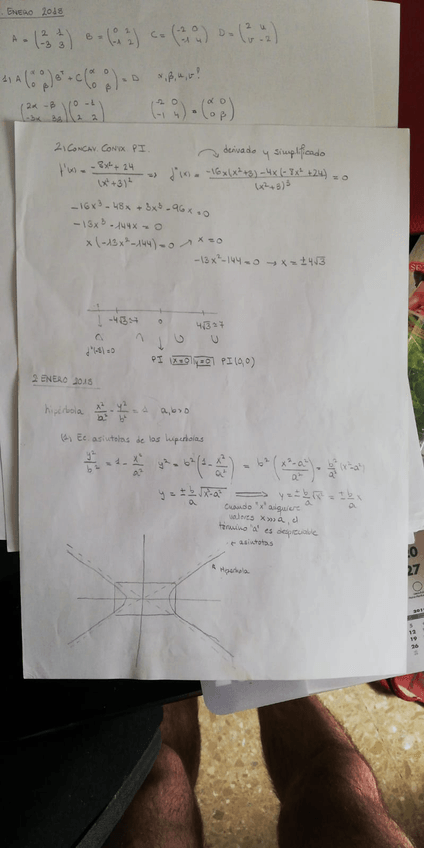 ENERO 2018
A = (2 1 / -3 3) B = (0 1 / -1 2) C = (-2 0 / -1 4) D = (2 u / v -2)
A (α 0 / 0 β) Bᵗ + C (α 0 / 0 β) = D α, β, u, v?
(2α -β / -3α 3β) (0 -1 / 1 2) (-2 0 / -1 4) = (α 0 / 0 β)
2) CONCAV. CONVX PI.
derivado y simplificado
f'(x) = (-8x² + 24)/(x²+3)² => f''(x) = (-16x(x²+3) - 4x(-8x²+24))/(x²+3)³ = 0
-16x³ - 48x + 3x³ - 96x = 0
-13x³ - 144x = 0
x(-13x² - 144) = 0 → x = 0
-13x² - 144 = 0 → x = ±4√3
-4√3 = -7 0 4√3 = 7
f''(-8) = 0
PI x=0 y=0 PI (0,0)
2 ENERO 2018
hipérbola x²/a² - y²/b² = 1 a, b > 0
Ec. asíntotas de las hipérbolas
y²/b² = 1 - x²/a² y² = b² (1 - x²/a²) = b² (x²-a²/a²) = b²/a² (x²-a²)
y = ± b/a √x²-a² => y = ± b/a √x² = ± b/a x
cuando "x" adquiere
valores x>>>a, el
término "a" es despreciable
asíntotas
Hipérbola
20
27
5
12
19
26